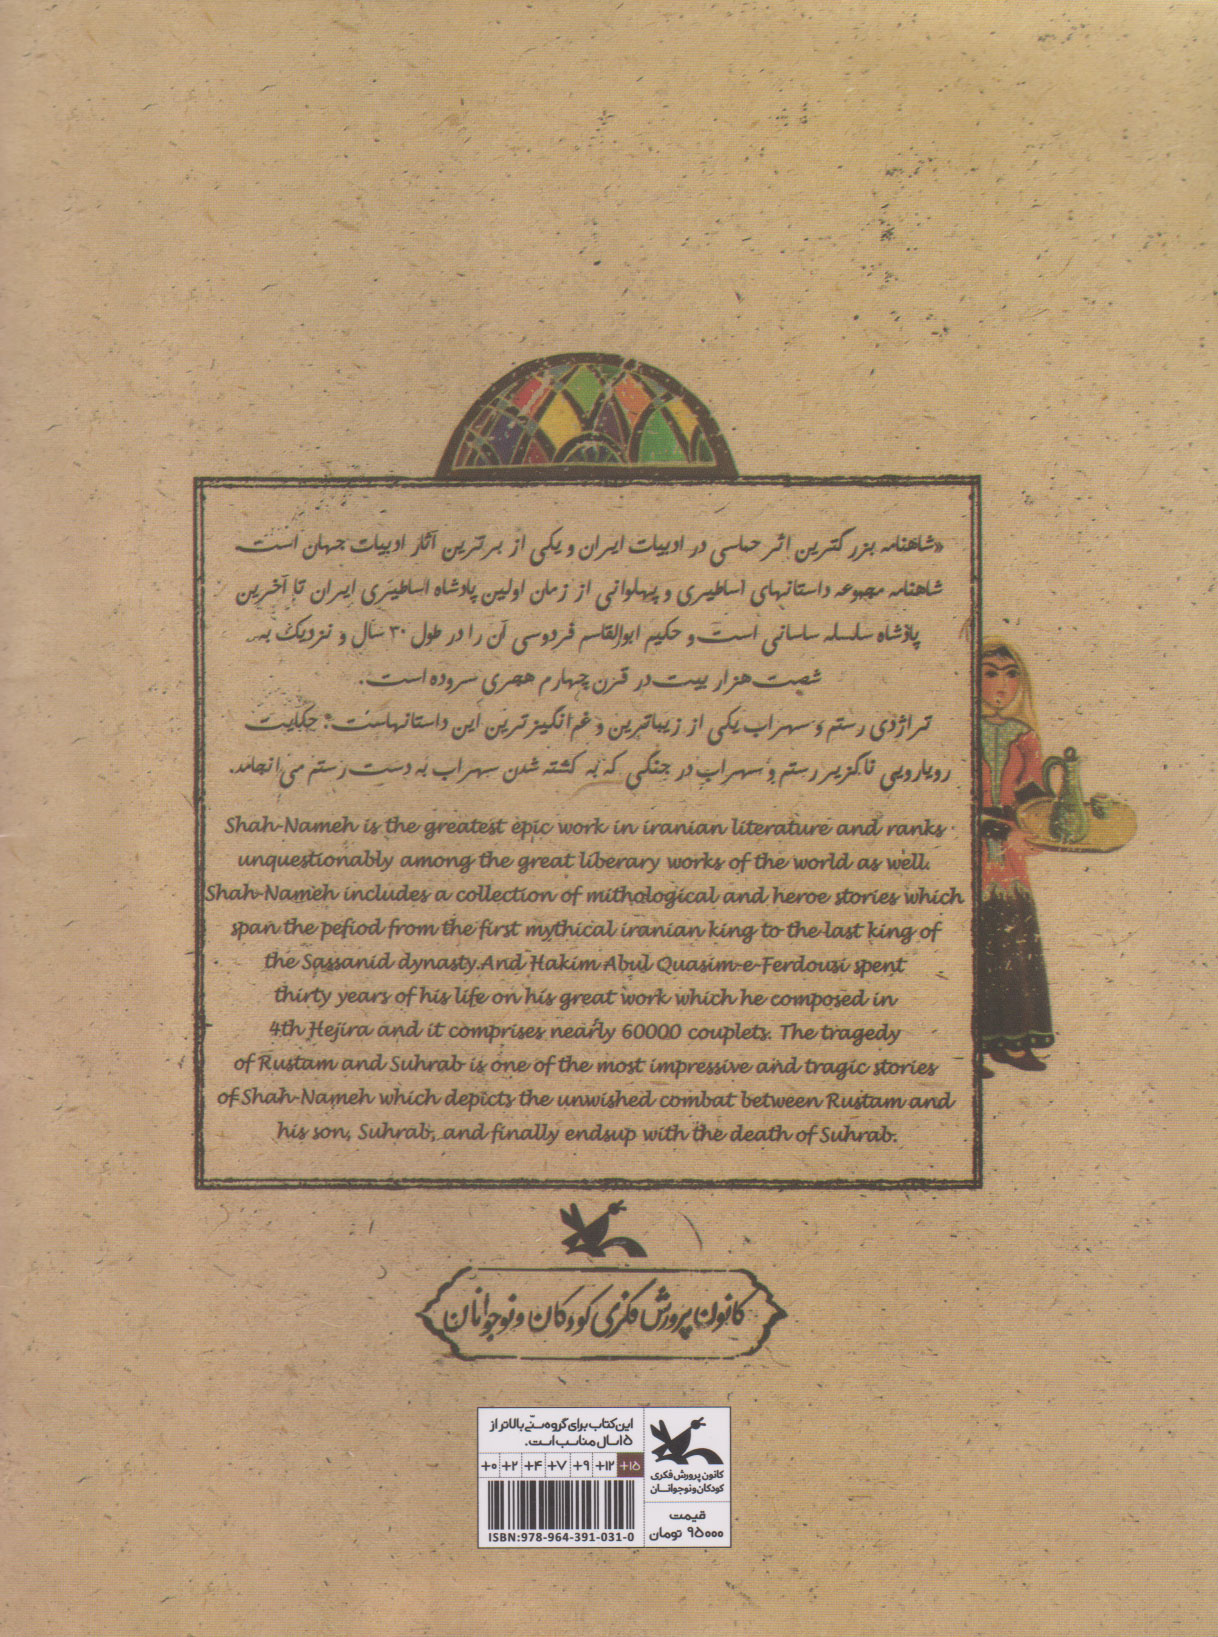 «شاهنامه بزرگترین اثر حماسی در ادبیات ایران و یکی از برترین آثار ادبیات جهان است
شاهنامه مجموعه داستانهای اساطیری و پهلوانی از زمان اولین پادشاه اساطیری ایران تا آخرین
پادشاه سلسله ساسانی است و حکیم ابوالقاسم فردوسی آن را در طول ۳۰ سال و نزدیک به
شصت هزار بیت در قرن چهارم هجری سروده است.
تراژدی رستم و سهراب یکی از زیباترین و غم‌انگیزترین این داستانهاست: حکایت
رویارویی ناگزیر رستم و سهراب در جنگی که به کشته شدن سهراب به دست رستم می‌انجامد.
Shah-Nameh is the greatest epic work in iranian literature and ranks
unquestionably among the great liberary works of the world as well.
Shah-Nameh includes a collection of mithological and heroe stories which
span the pefiod from the first mythical iranian king to the last king of
the Sassanid dynasty.And Hakim Abul Quasim-e-Ferdousi spent
thirty years of his life on his great work which he composed in
4th Hejira and it comprises nearly 60000 couplets. The tragedy
of Rustam and Suhrab is one of the most impressive and tragic stories
of Shah-Nameh which depicts the unwished combat between Rustam and
his son, Suhrab, and finally endsup with the death of Suhrab.
کانون پرورش فکری کودکان و نوجوانان
این کتاب برای گروه سنّی بالاتر از
۱۵ سال مناسب است.
+۱۵ +۱۲ +۹ +۷ +۴ +۲ +۰
ISBN:978-964-391-031-0
کانون پرورش فکری
کودکان و نوجوانان
قیمت
۹۵۰۰۰ تومان